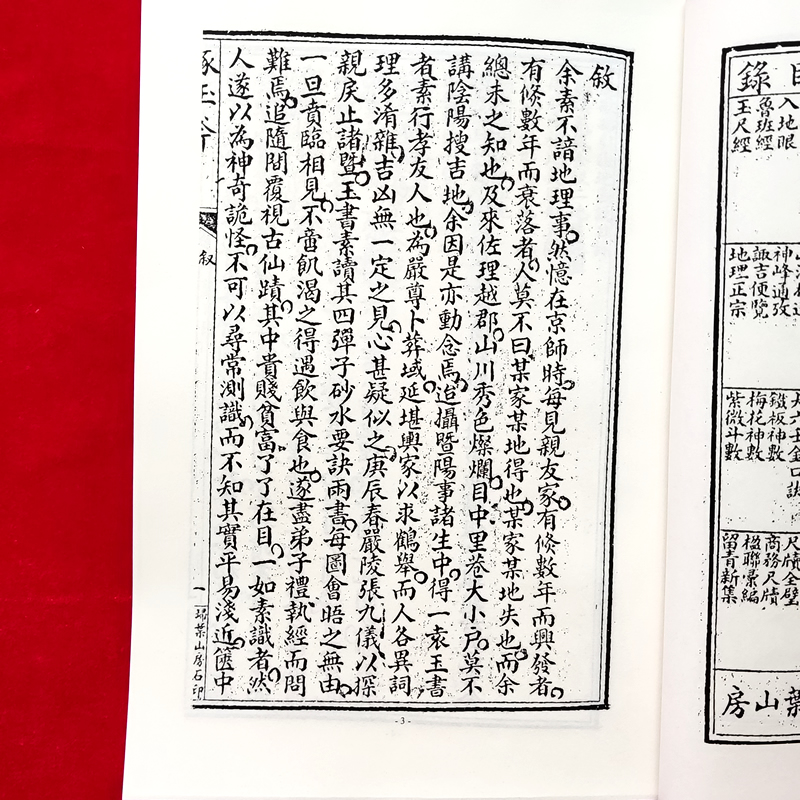 敘
余素不諳地理事然憶在京師時每見親友家有倏數年而興發者
有倏數年而衰落者人莫不曰某家某地得也某家某地失也而余
總未之知也及來佐理越郡山川秀色燦爛目中里巷大小戶莫不
講陰陽搜吉地余因是亦動念焉迨攝暨陽事諸生中得一袁玉書
者素行孝友人也為嚴尊卜葬域延堪輿家以求鶴舉而人各異詞
理多淆雜吉凶無一定之見心甚疑似之庚辰春嚴陵張九儀以探
親戾止諸暨玉書素讀其四彈子砂水要訣兩書每圖會晤之無由
一旦賁臨相見不啻飢渴之得遇飲與食也遂盡弟子禮執經而問
難焉追隨間覆視古仙蹟其中貴賤貧富了了在目一如素識者然
人遂以為神奇詭怪不可以尋常測識而不知其實平易淺近篋中
敘
一
埽葉山房石印
- 3 -
目錄
入地眼
魯班經
玉尺經
神峰通攷
諏吉便覽
地理正宗
大六壬金口訣
鐵板神數
梅花神數
紫微斗數
尺牘全璧
商務尺牘
楹聯彙編
留青新集
葉山房